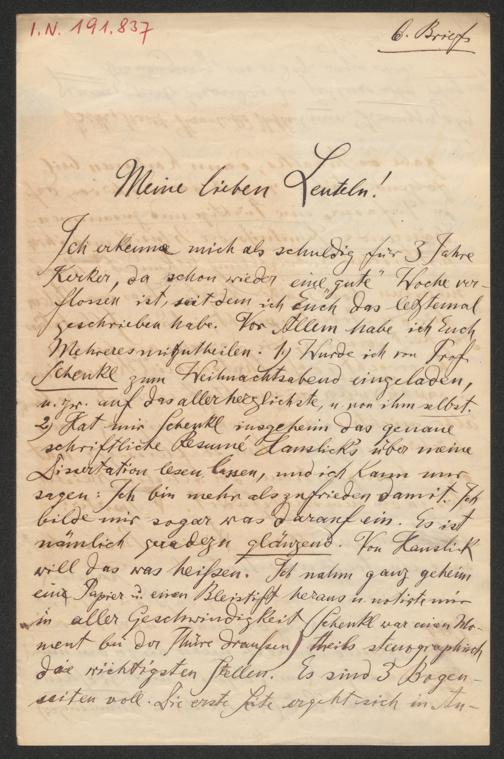 I.N. 191.837
6. Brief
Meine lieben Leuteln!
Ich erkenne mich als schuldig für 3 Jahre
Kerker, da schon wieder eine „gute" Woche ver-
flossen ist, seitdem ich Euch das letztemal
geschrieben habe. Vor Allem habe ich Euch
Mehreres mitzutheilen. 1) Wurde ich von Prof.
Schenkl zum Weihnachtsabend eingeladen,
u. zw. auf das allerherzlichste, u. von ihm selbst.
2) Hat mir Schenkl insgeheim das genaue
schriftliche Resumé Hanslick's über meine
Dissertation lesen lassen, und ich kann nur
sagen: Ich bin mehr als zufrieden damit. Ich
bilde mir sogar was darauf ein. Es ist
nämlich geradezu glänzend. Von Hanslick
will das was heißen. Ich nahm ganz geheim
ein Papier u. einen Bleistift heraus u. notirte mir
in aller Geschwindigkeit (Schenkl war einen Mo-
ment bei der Thüre draußen) theils stenographisch
die wichtigsten Stellen. Es sind 3 Bogen-
seiten voll. Die erste Seite ergeht sich in An-